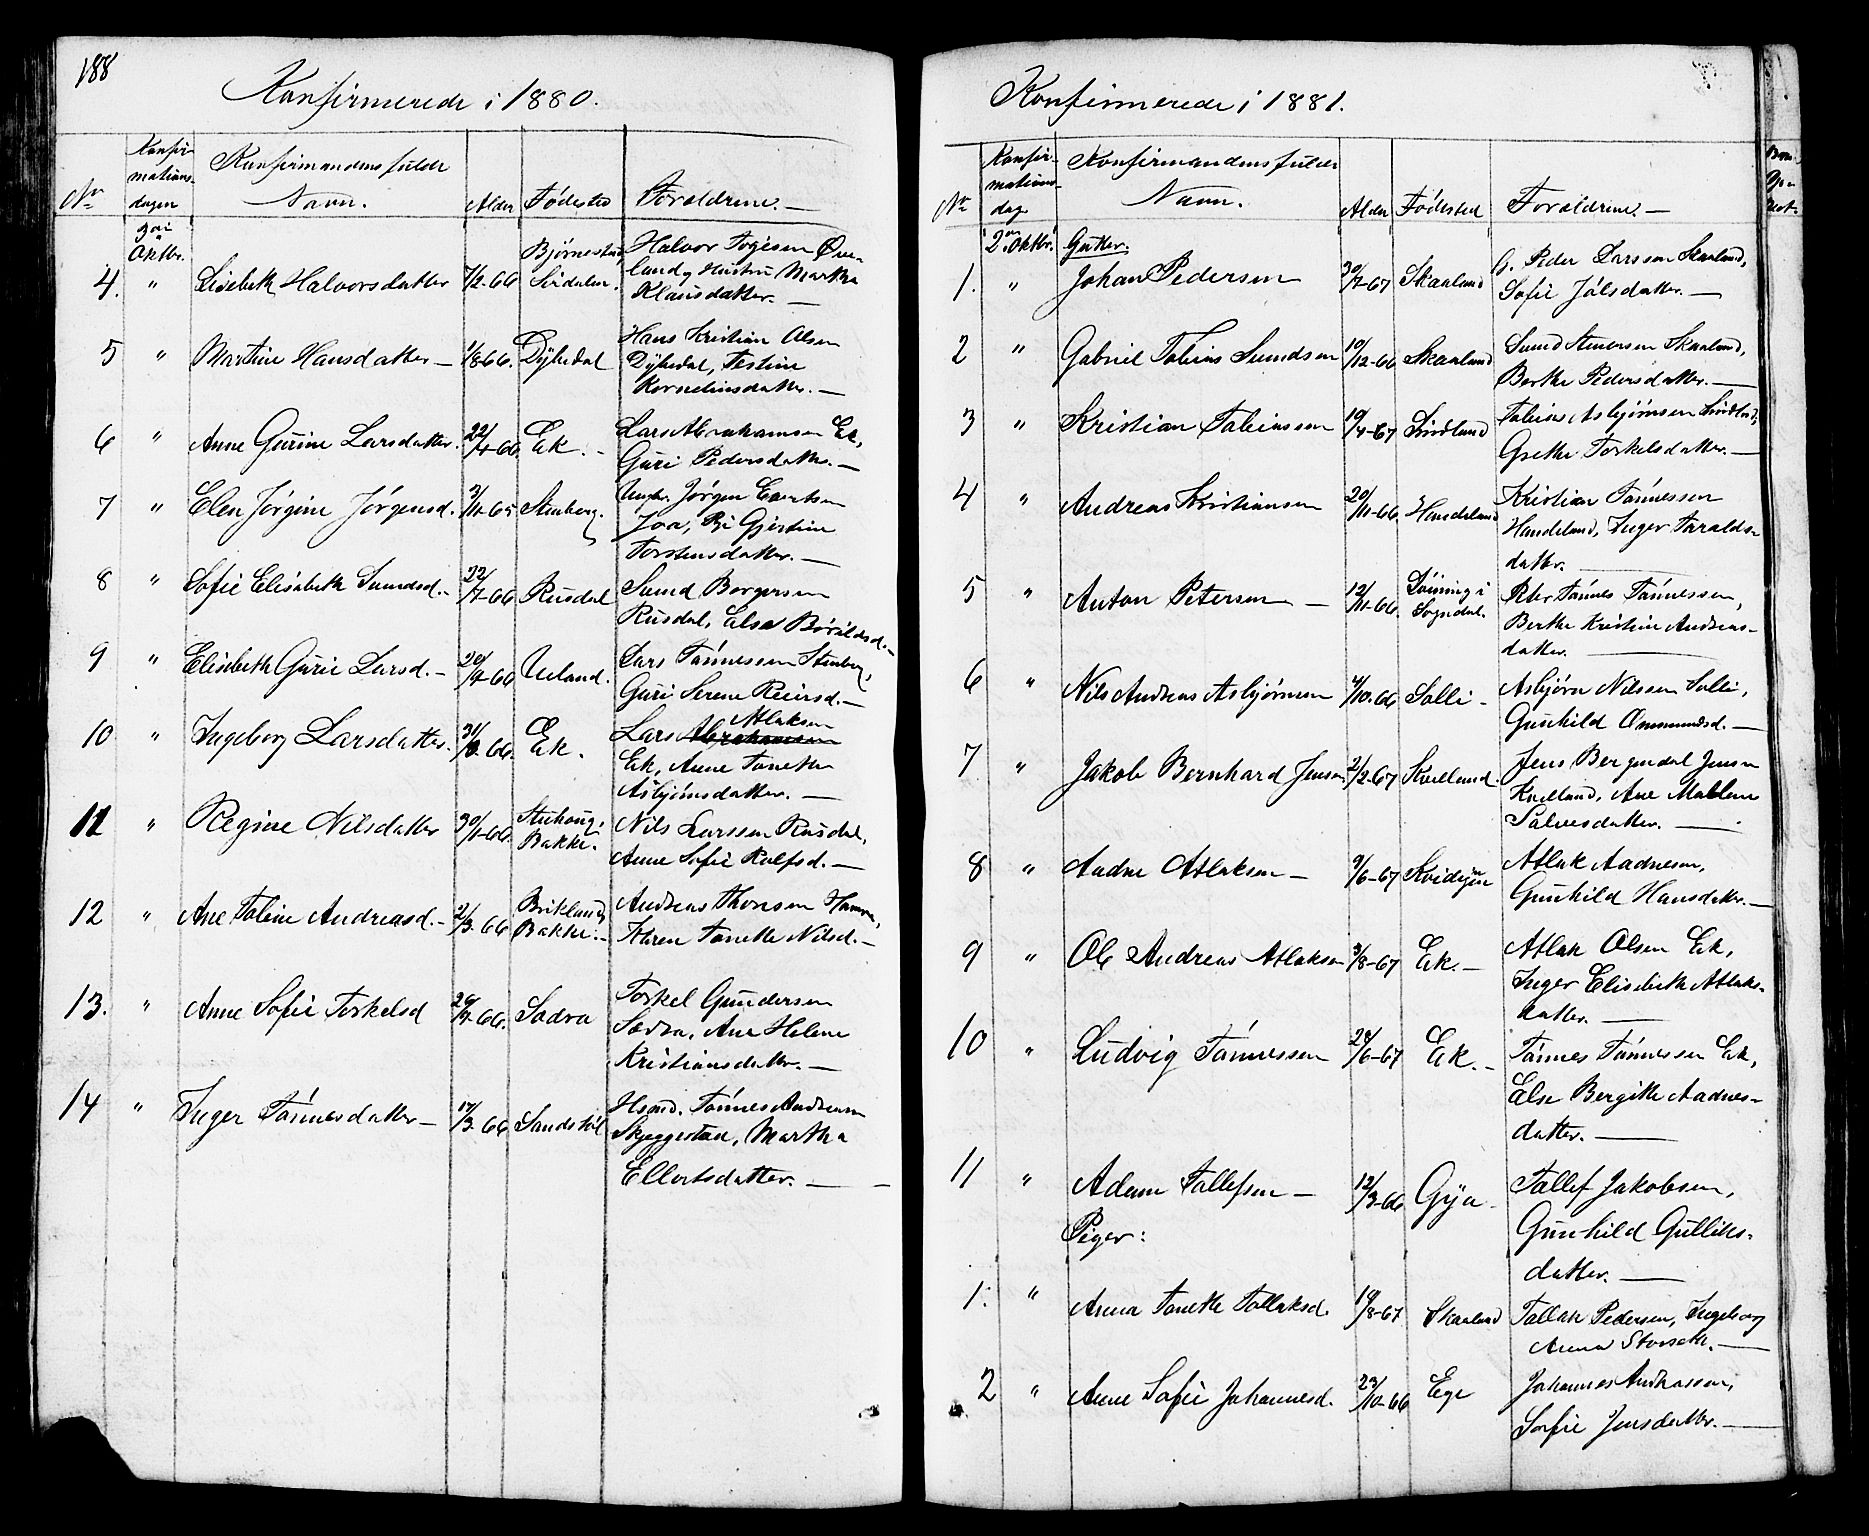 188
Konfirmerede i 1880.
No
Konfir-
mations-
dagen
Konfirmandens fulde
Navn.
Alder
Fødested
Foreldrene. —
3die
Oktbr.
4. " Lisebeth Halvorsdatter 7/2-66 Sirdalen.
Halvor
Hustru Martha
Klausdatter. —
5 " Martine Hansdatter — 1/8-66. Dybedal
Hans Kristian Olsen
Dybedal, Testine
Korneliusdatter. —
6 " Anne Gurine Larsdatter. 22/4-66. Ek. -
Lars Abrahamsen Ek,
Guri Pedersdatter. —
7 " Elen Jørgine Jørgensd. 3/11-65 Stenberg.
Ungkr. Jørgen Evertsen
Joa, Pige Gjertine
Torstensdatter. —
8 " Sofie Elisabeth Sumdsd. - 22/7-66 Rusdal
Sumd Borgersen
Rusdal, Else Børildsd. —
9 " Elisebeth Gurie Larsd. - 20/4-66 Ueland.
Lars Tønnessen Stenberg,
Guri Serene Reiersd. —
10 " Ingeborg Larsdatter. 31/8-66. Ek.
Atlaksen
Lars Abrahamsen
Ek, Anne Tonette
Asbjørnsdatter. —
11 " Regine Nilsdatter 30/1-66. Bakke.
Nils Larssen Rusdal,
Anne Sofie Rolfsd. —
12 " Ane Taline Andreasd. - 2/3-66 Birkland, Bakke. -
Andreas Thorsen Hamre,
Karen Tonette Nilsd. —
13. " Anne Sofie Torkelsd 29/4-66. Sædra
Torkel Gundersen
Sædra, Ane Helene
Kristiansdatter. —
14 " Inger Tønnesdatter — 17/3-66 Sandstøl
Hsmd. Tønnes Andreasen
Skjeggestad, Martha
Ellertsdatter. — —
Konfirmerede i 1881.
No
Konfir-
mations-
dag
Konfirmandens fulde
Navn.
Alder
Fødested
Foreldrene. —
2den Oktbr. Gutter.
1. " Johan Pedersen 30/7-67 Skaaland
G. Peder Larssen Skaaland,
Sofie Jølsdatter. —
2 " Gabriel Tobias Sumdsen 10/12-66 Skaaland
Sumd Stenersen Skaaland,
Berthe Pedersdatter. —
3 " Kristian Tobiassen 19/4-67 Lindland
Tobias Asbjørnsen Lindland,
Grethe Torkelsdatter. —
4 " Andreas Kristiansen 20/11-66. Handeland
Kristian Tønnessen
Handeland, Inger Taralds-
datter. —
5 " Anton Petersen — 12/11-66. Løining i Sogndal.
Peter Tønnes Tønnessen,
Berthe Kristine Andreas-
datter. —
6 " Nils Andreas Asbjørnsen 4/10-66 Salli -
Asbjørn Nilssen Salli,
Gunhild Ommundsd. —
7 " Jakob Bernhard Jensen 2/2-67 Kvelland.
Jens Bergendal Jensen
Kvelland, Ane Mallene
Salvesdatter. —
8 " Aadne Atlaksen — 9/6-67 Kvidsjøen
Atlak Aadnesen,
Gunhild Hansdatter. —
9 " Ole Andreas Atlaksen 3/8-67 Ek. —
Atlak Olsen Ek,
Inger Elisebeth Atlaks-
datter. —
10 " Ludvig Tønnessen 24/6-67 Ek. -
Tønnes Tønnessen Ek,
Else Bergitte Aadnes-
datter. —
11 " Adam Tallefsen — 12/3-66 Gya -
Tallef Jakobsen,
Gunhild Gulliks-
datter. —
Piger:
1. " Anna Tonette Tallaksd. 19/8-67 Skaaland
Tallak Pedersen, Ingeborg
Anna Storseth. —
2 " Anne Sofie Johannesd. 23/10-66 Ege
Johannes Andreassen,
Sofie Jensdatter. —